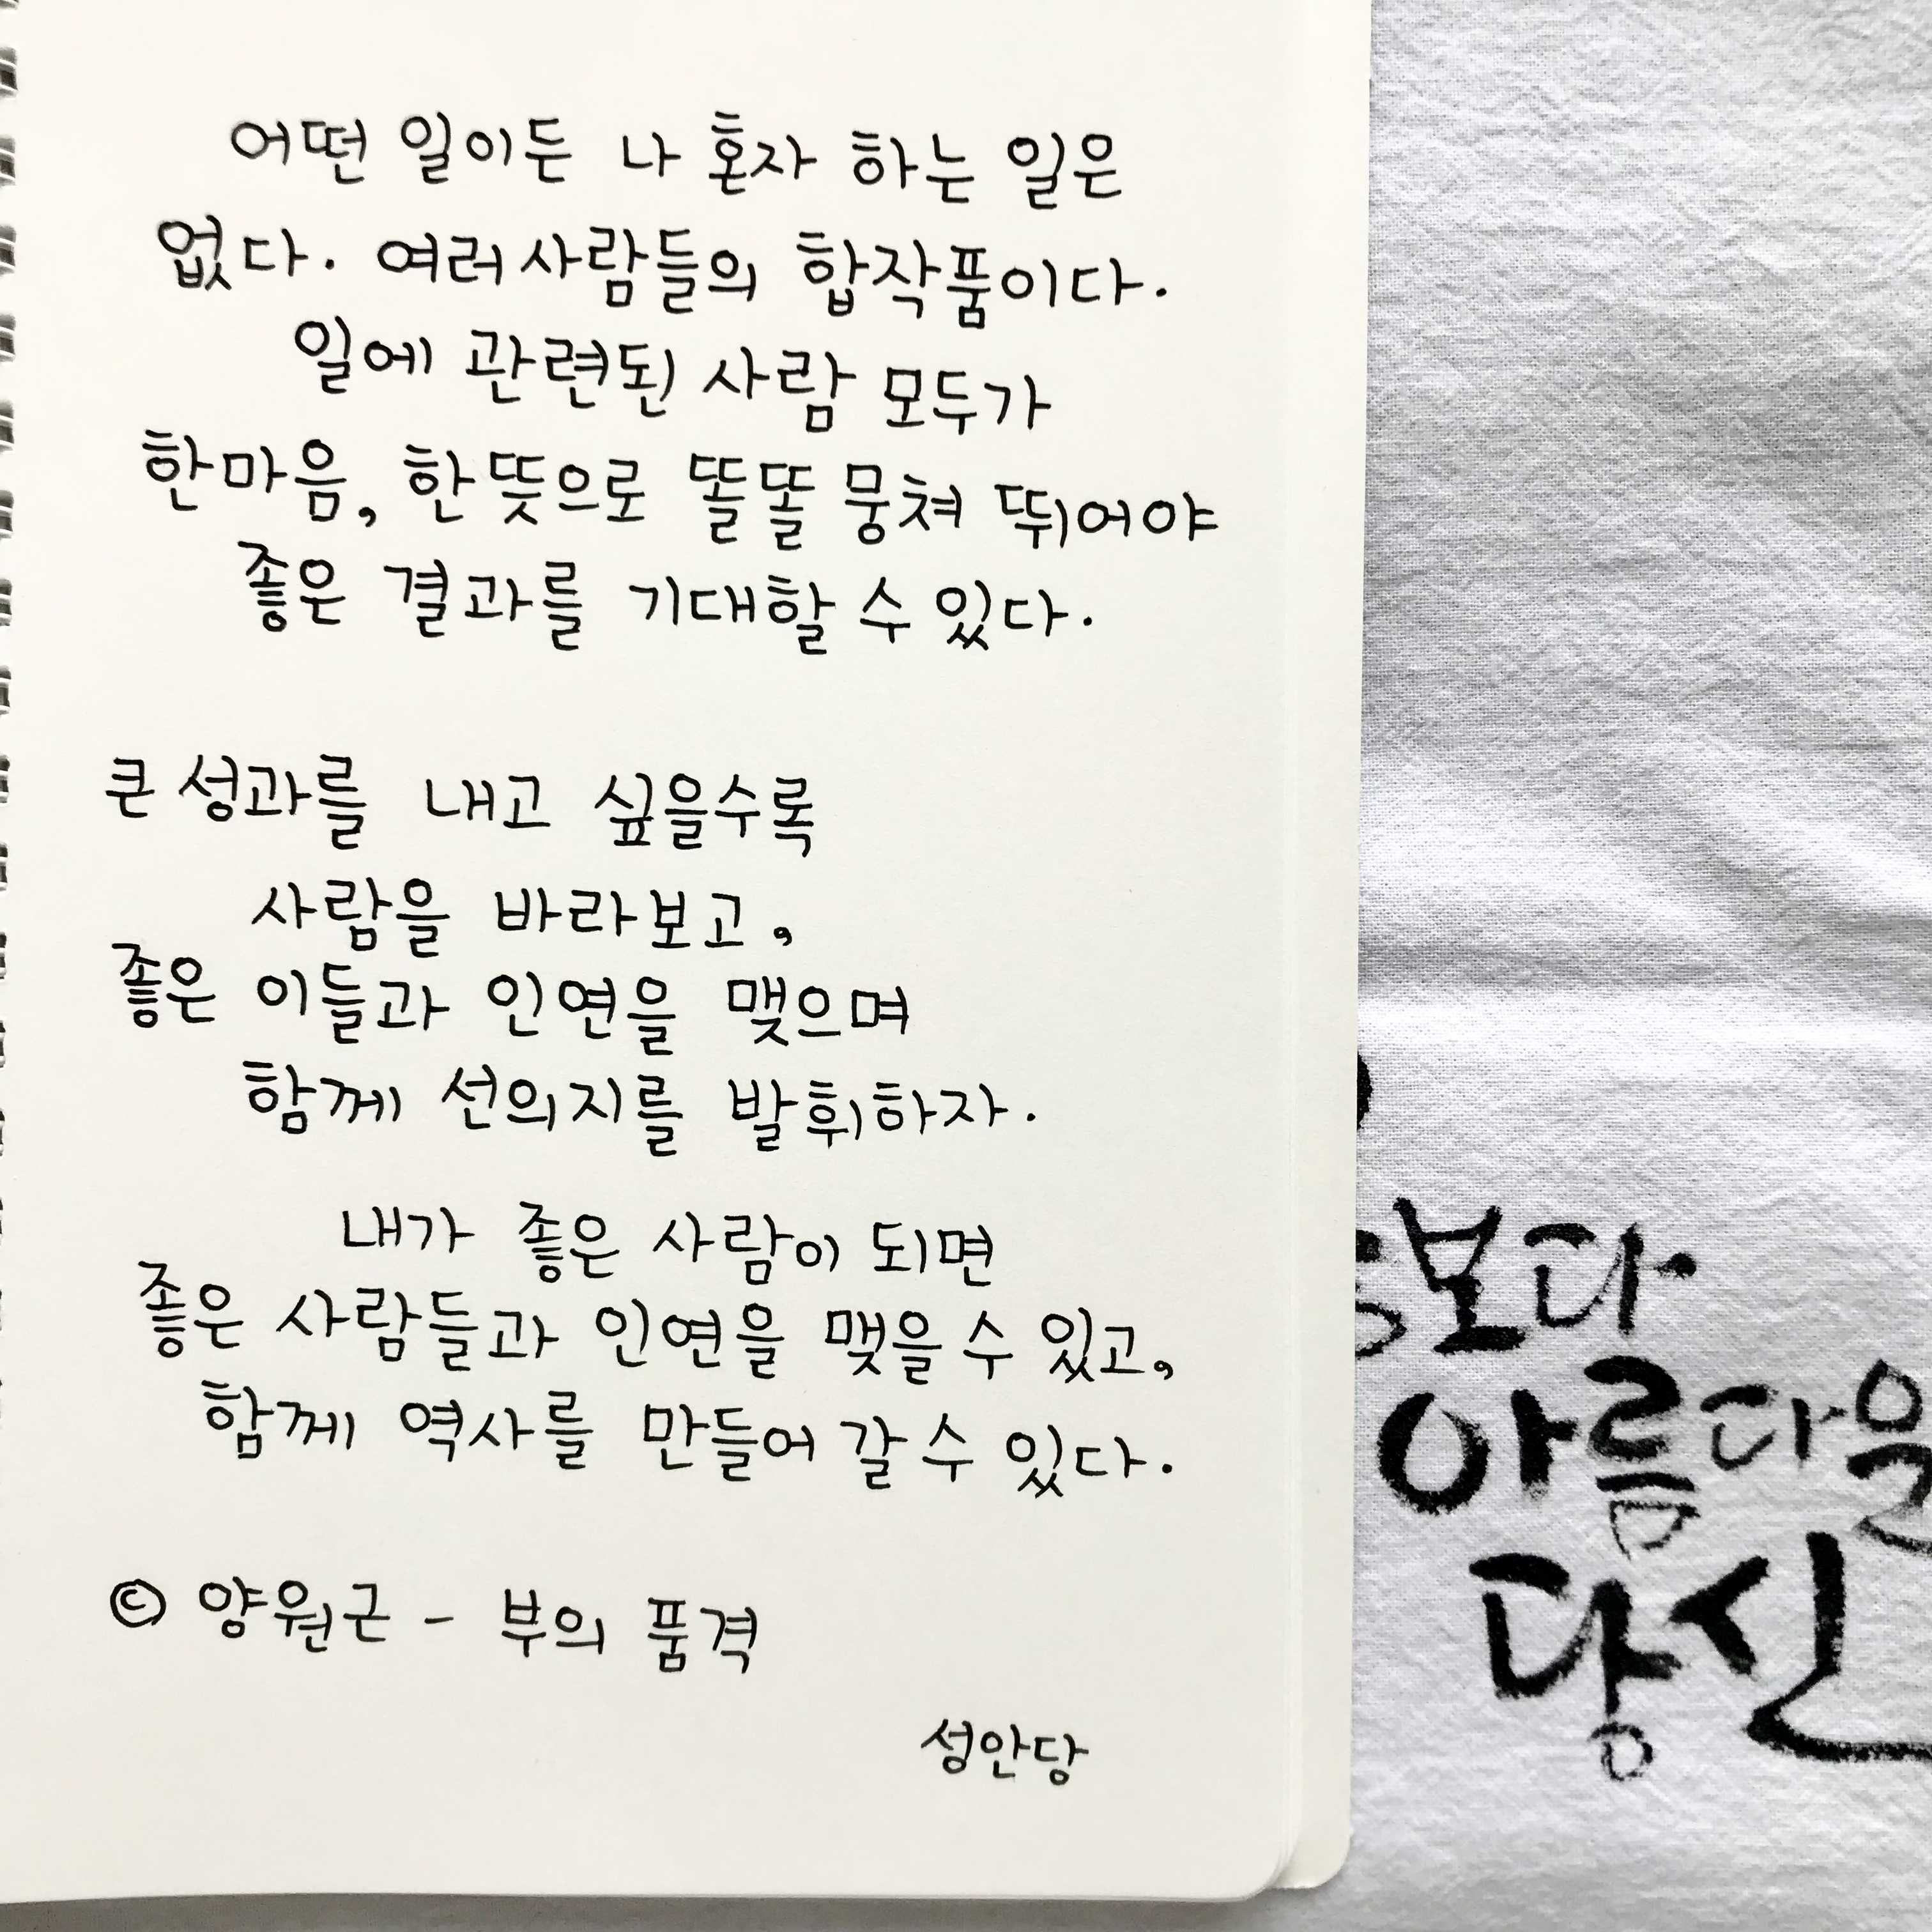 어떤 일이든 나 혼자 하는 일은
없다. 여러 사람들의 합작품이다.
일에 관련된 사람 모두가
한마음, 한뜻으로 똘똘 뭉쳐 뛰어야
좋은 결과를 기대할 수 있다.
큰 성과를 내고 싶을수록
사람을 바라보고,
좋은 이들과 인연을 맺으며
함께 선의지를 발휘하자.
내가 좋은 사람이 되면
좋은 사람들과 인연을 맺을 수 있고,
함께 역사를 만들어 갈 수 있다.
© 양원근 - 부의 품격
성안당
보다
아름다울
당신